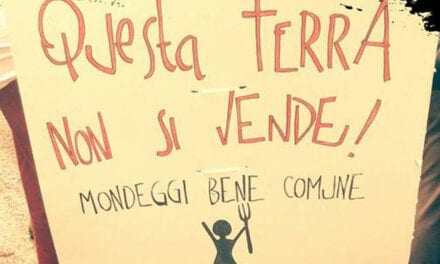 QUESTA TERRA
NON SI VENDE!
MONDEGGI BENE COMUNE